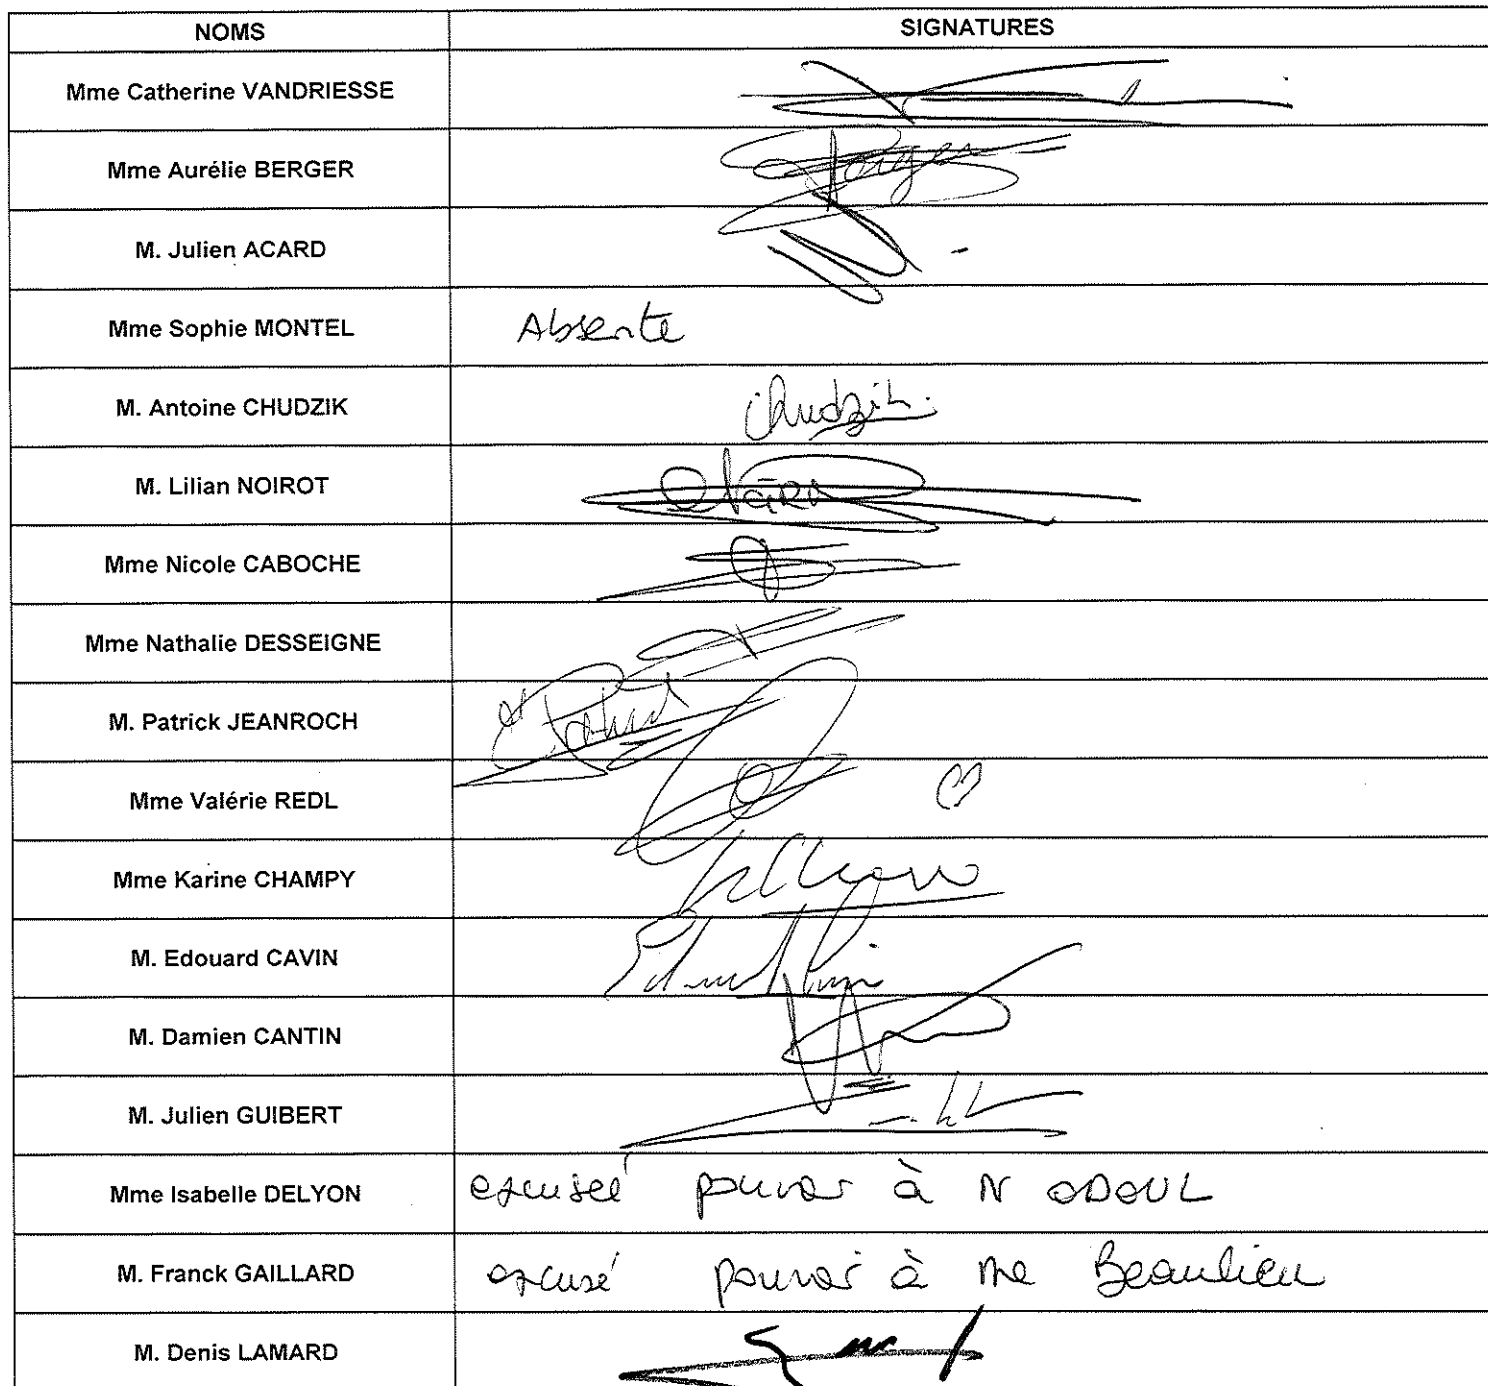 NOMS SIGNATURES
Mme Catherine VANDRIESSE
Mme Aurélie BERGER
M. Julien ACARD
Mme Sophie MONTEL Absente
M. Antoine CHUDZIK Chudzik.
M. Lilian NOIROT
Mme Nicole CABOCHE
Mme Nathalie DESSEIGNE
M. Patrick JEANROCH
Mme Valérie REDL
Mme Karine CHAMPY
M. Edouard CAVIN
M. Damien CANTIN
M. Julien GUIBERT
Mme Isabelle DELYON excusée pouvoir à ODOUL
M. Franck GAILLARD excusé pouvoir à Me Beaulieu
M. Denis LAMARD